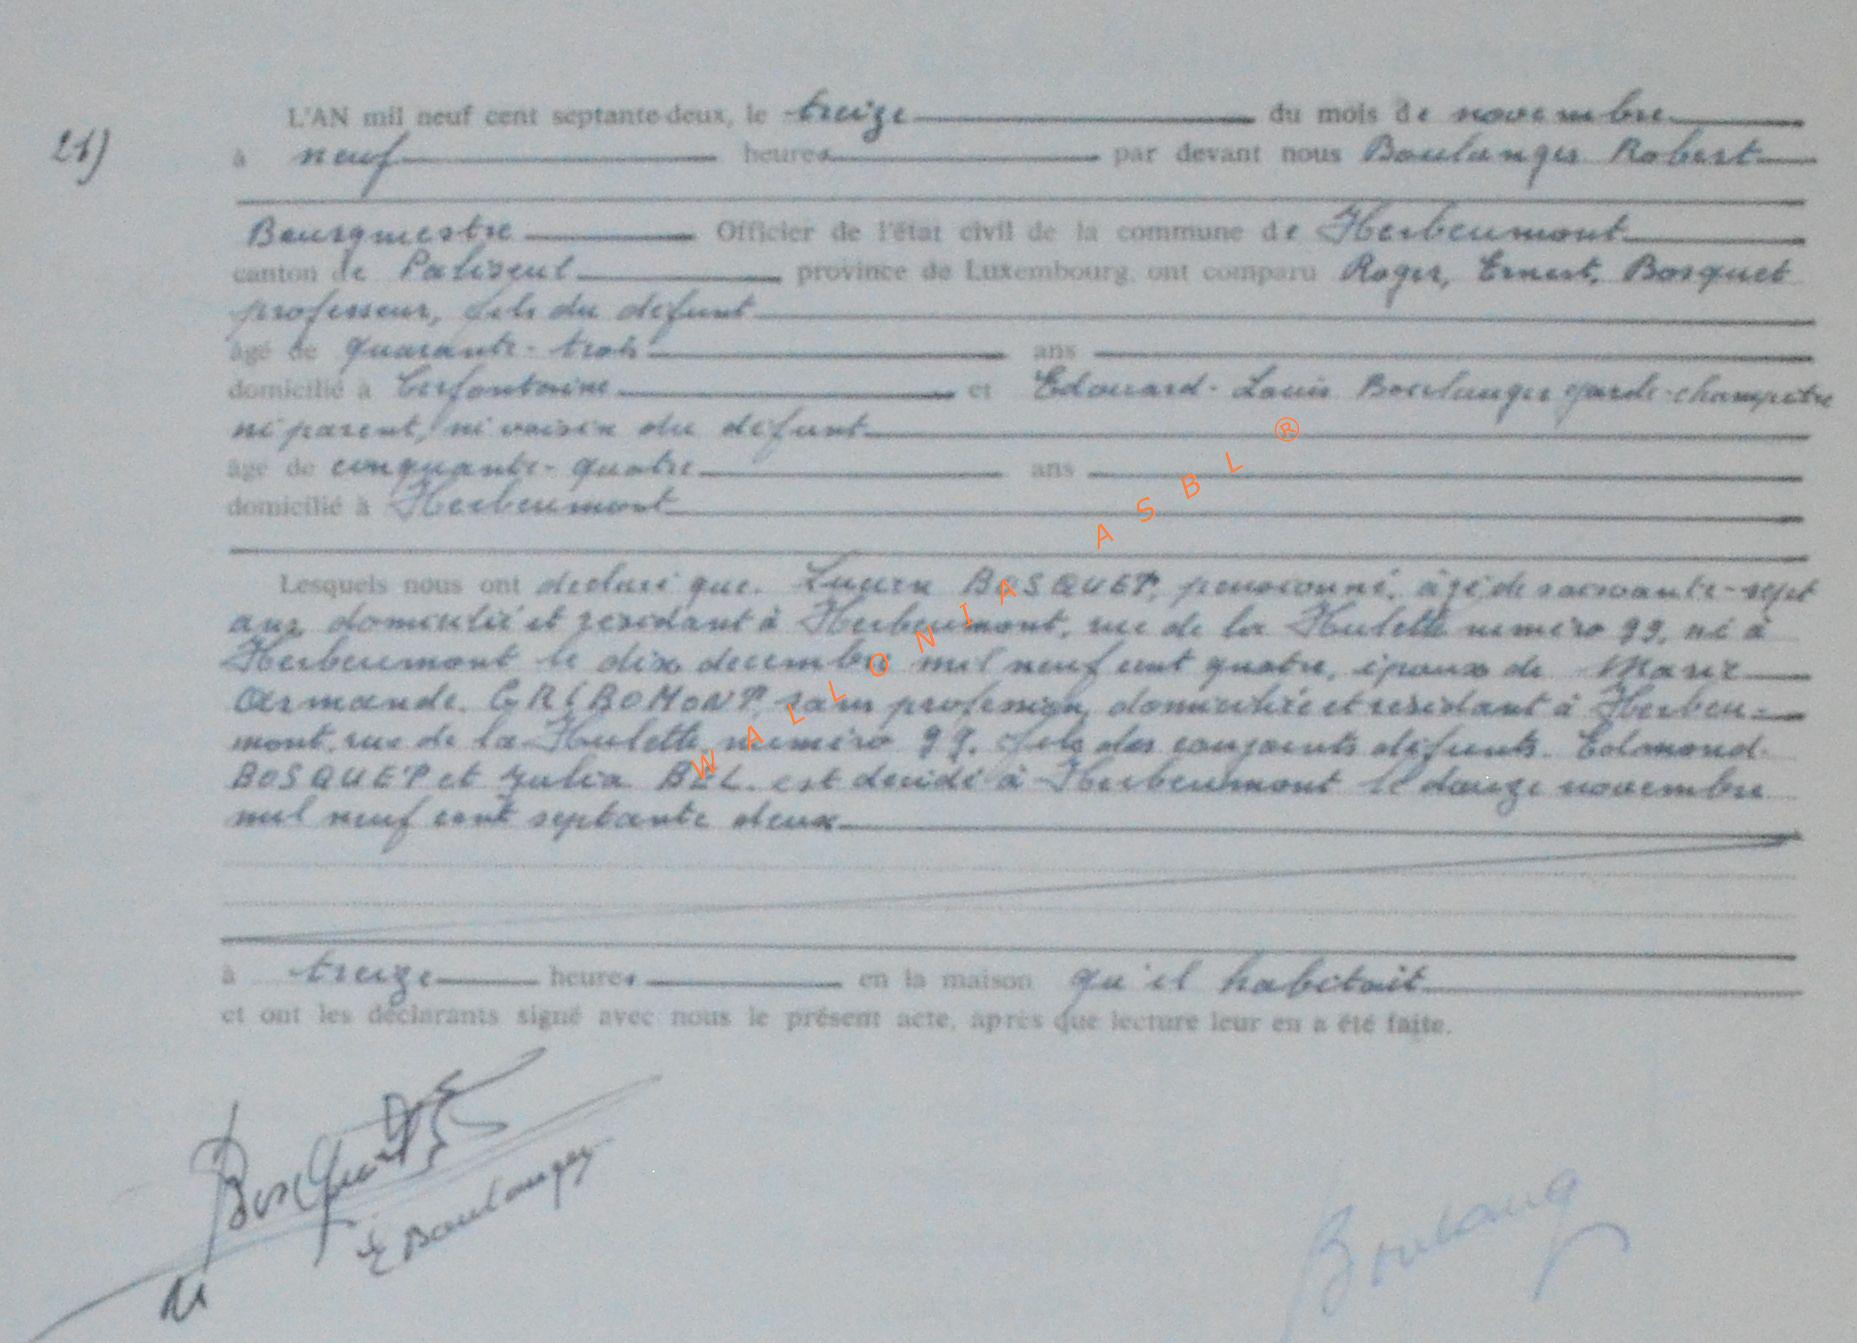 L'AN mil neuf cent septante-deux, le treize du mois de novembre
21)
à neuf heures par devant nous Boulanger Robert
Bourgmestre Officier de l'état civil de la commune de Herbeumont
canton de Paliseul province de Luxembourg, ont comparu Roger, Ernest, Bosquet
professeur, fils du défunt
âgé de quarante-trois ans
domicilié à Cerfontaine et Edouard-Louis Boulanger garde-champêtre
ni parent, ni voisin du défunt
âgé de cinquante-quatre ans
domicilié à Herbeumont
Lesquels nous ont déclaré que Lucien BOSQUET, pensionné, âgé de soixante-sept
ans domicilié et résidant à Herbeumont, rue de la Hulette numéro 99, né à
Herbeumont le dix décembre mil neuf cent quatre, époux de Marie
Armande GRIBOMONT, sans profession, domiciliée et résidant à Herbeu-
mont, rue de la Hulette numéro 99, fils des conjoints défunts Edmond
BOSQUET et Julia BEL est décédé à Herbeumont le douze novembre
mil neuf cent septante deux
à treize heures en la maison qu'il habitait
et ont les déclarants signé avec nous le présent acte, après que lecture leur en a été faite.
Bosquet
E Boulanger
Boulang
WALLONIA ASBL ®